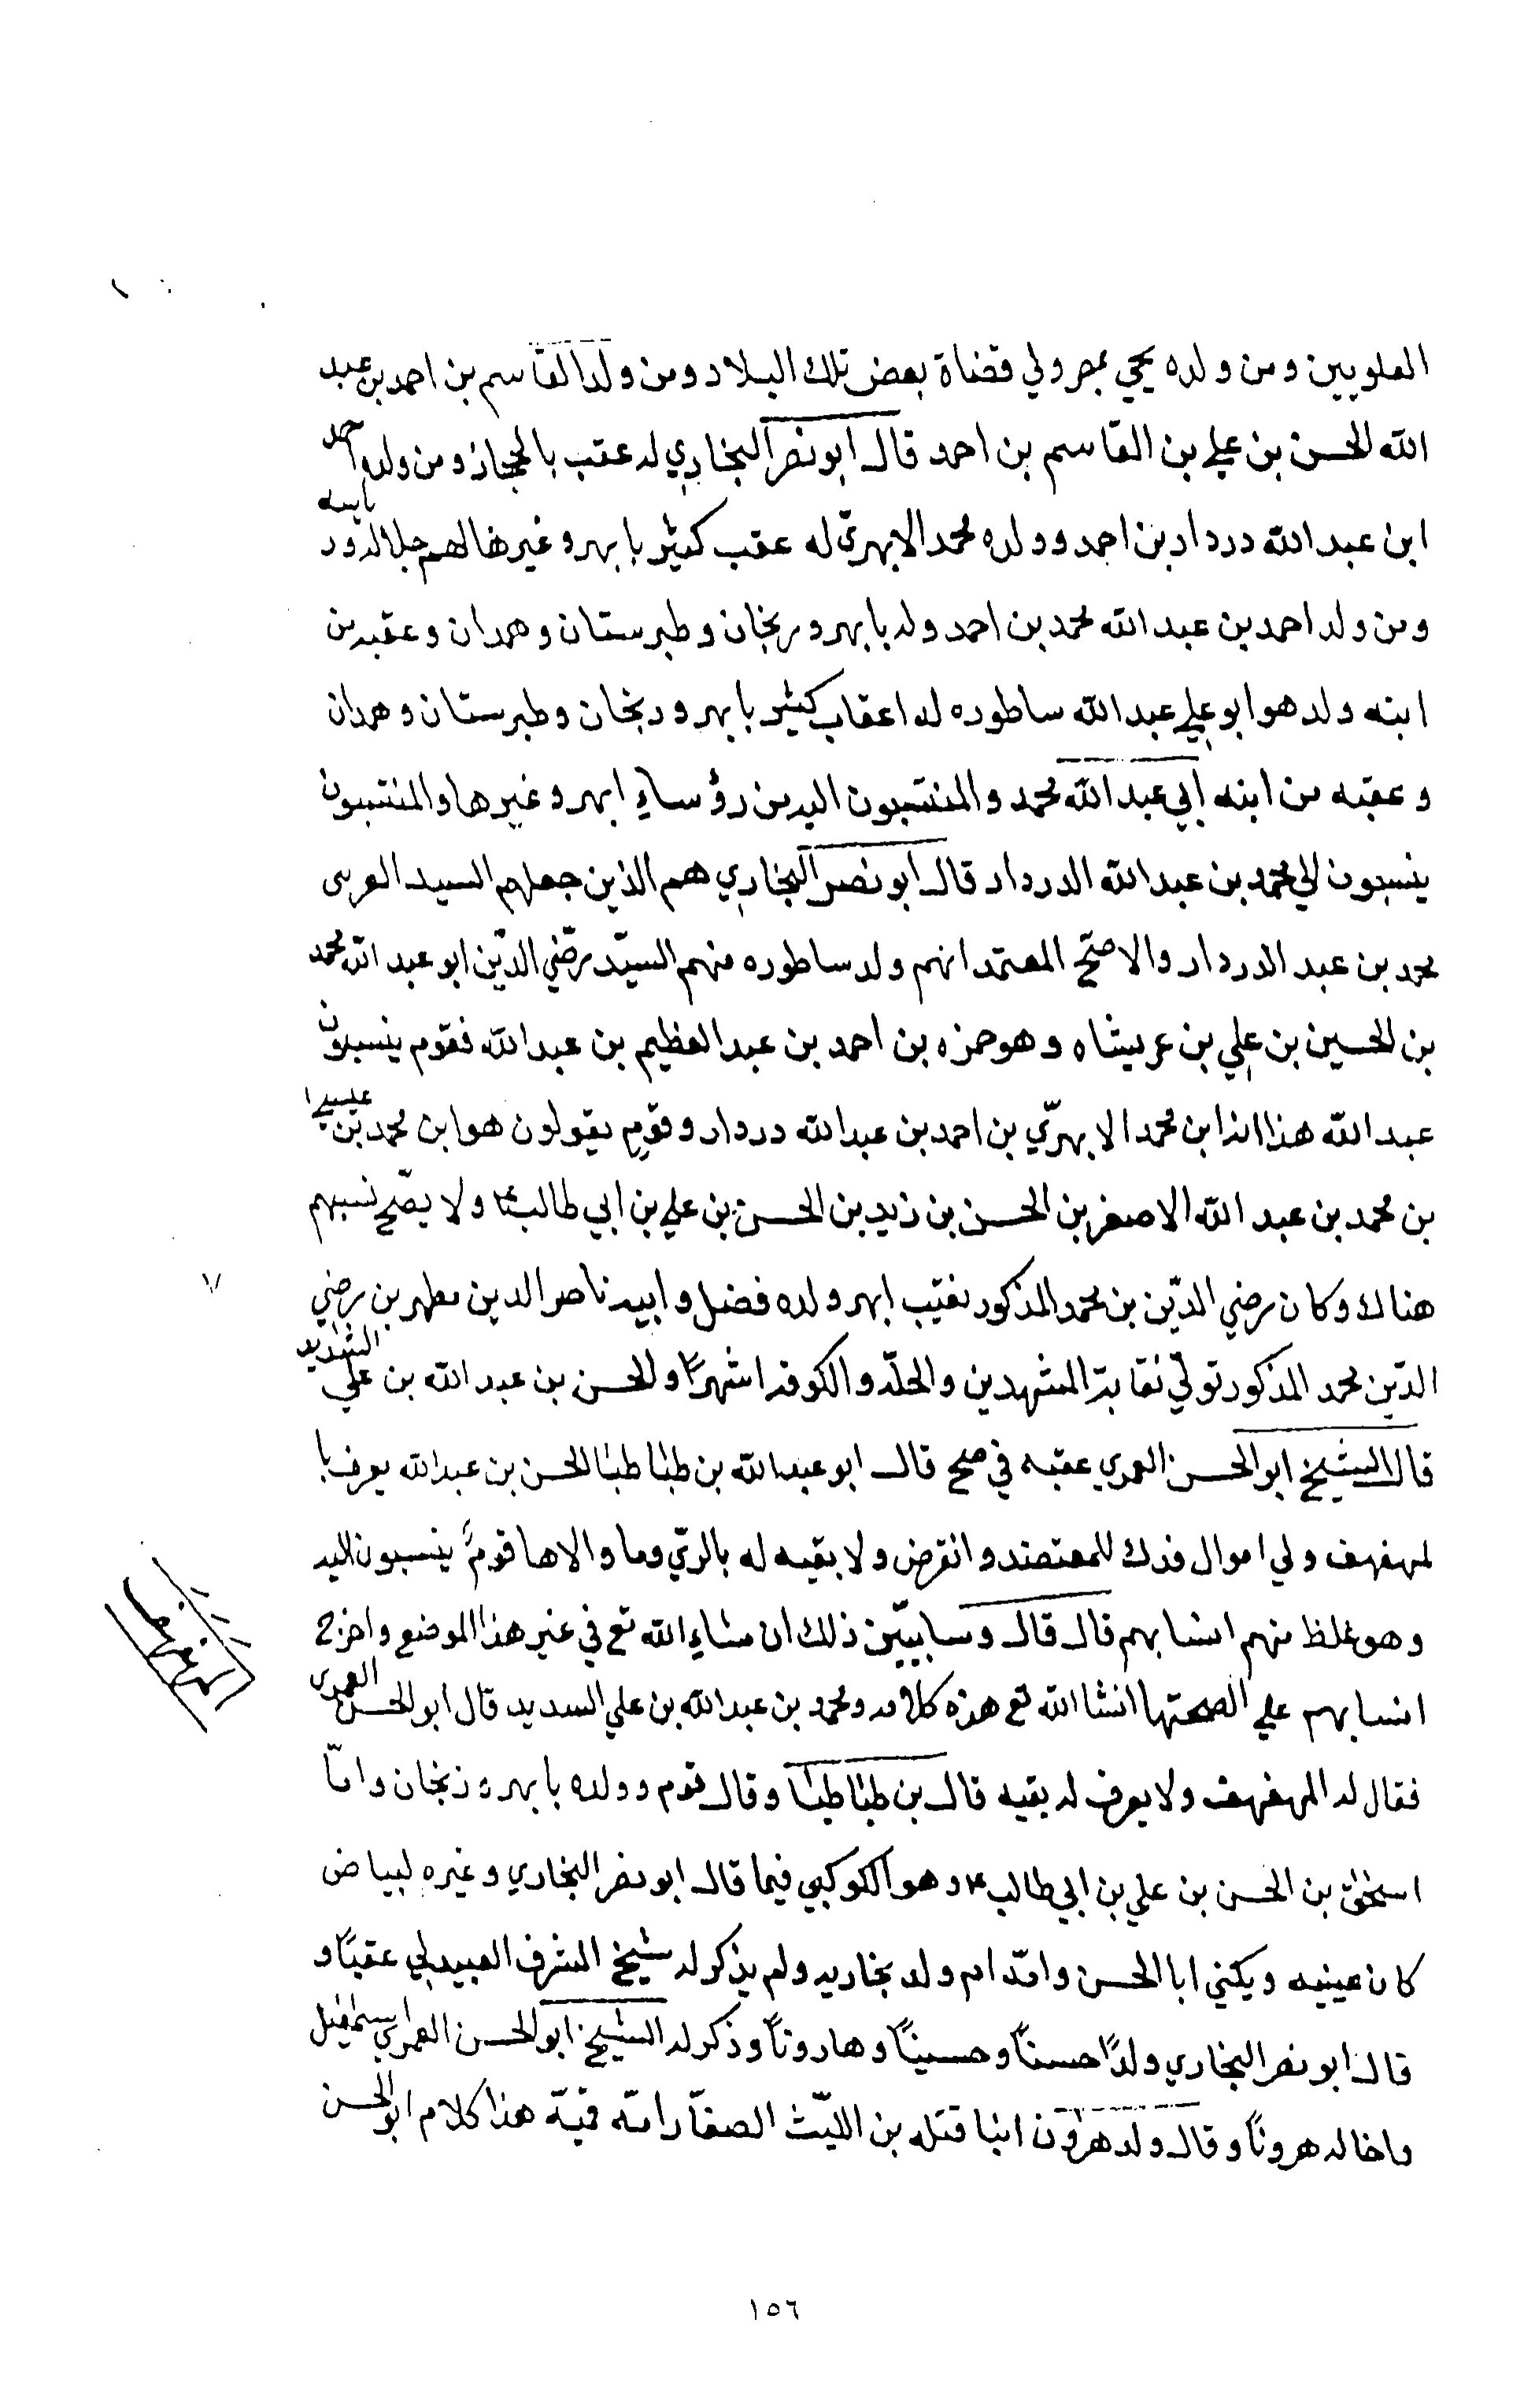 العلويين ومن ولده يحيي بمصر ولي قضاة بعض تلك البلاد ومن ولد القاسم بن احمد بن عبد
الله الحسن بن علي بن القاسم بن احمد قال ابو نصر البخاري له عقب بالحجاز ومن ولده احمد
ابن عبد الله دردار بن احمد وولده محمد الابهري له عقب كثير بابهر وغيرها لهم جلالة ورياسه
ومن ولد احمد بن عبد الله محمد بن احمد ولد بابهر وزنجان وطبرستان وهمدان وعقبه من
ابنه ولد هو ابو علي عبد الله ساطوره له اعقاب كثير بابهر وزنجان وطبرستان وهمدان
وعقبه من ابنه ابي عبد الله محمد والمنتسبون اليه من رؤساء ابهر وغيرها والمنتسبون
ينسبون الي محمد بن عبد الله الدردار قال ابو نصر البخاري هم الذين جعلهم السيد العربى
محمد بن عبد الدردار والاصح المعتمد انهم ولد ساطوره منهم السيد رضي الدين ابو عبد الله محمد
بن الحسين بن علي بن عربشاه وهو حمزه بن احمد بن عبد العظيم بن عبد الله فقوم ينسبون
عبد الله هذا انه ابن محمد الابهري بن احمد بن عبد الله دردار وقوم يقولون هو ابن محمد بن علي
بن محمد بن عبد الله الاصغر بن الحسن بن زيد بن الحسن بن علي بن ابي طالب ولا يصح نسبهم
هنالك وكان رضي الدين بن محمد المذكور نقيب ابهر ولده فضل وابيه ناصر الدين مطهر بن رضي
الدين محمد المذكور تولي نقابة المشهدين والحلة والكوفه اشهرا والحسن بن عبد الله بن علي الشديد
قال الشيخ ابو الحسن العمري عقبه في صح قال ابو عبد الله بن طباطبا الحسن بن عبد الله يعرف با
لمهفهف ولي اموال فدك للمعتضد وانقرض ولا بقيه له بالري وما والاها قوم ينسبون اليه
وهو غلظ منهم انسابهم قال قال وسابيين ذلك ان شاء الله تع في غير هذا الموضع واخرج
انسابهم علي الصحتها انشا الله تع هذه كلامه ومحمد بن عبد الله بن علي السديد قال ابو الحسن العمرى
فقال له المهفهف ولا يعرف له بقيه قال بن طباطبا وقال قوم وولده بابهر وزنجان واما
اسحق بن الحسن بن علي بن ابي طالب وهو الكوكبي فيما قال ابو نصر البخاري وغيره لبياض
كان عينيه ويكني ابا الحسن وامه ام ولد بخاريه ولم يذكر له شيخ الشرف العبيدلي عقبا و
قال ابو نصر البخاري ولدا حسنا وحسينا وهارونا وذكر له الشيخ ابو الحسن العمري اسمعيل
واخاله هرونا وقال ولد هرون ابنا قتله بن الليث الصفار امه قميه هذا كلام ابو الحسن
١٥٦